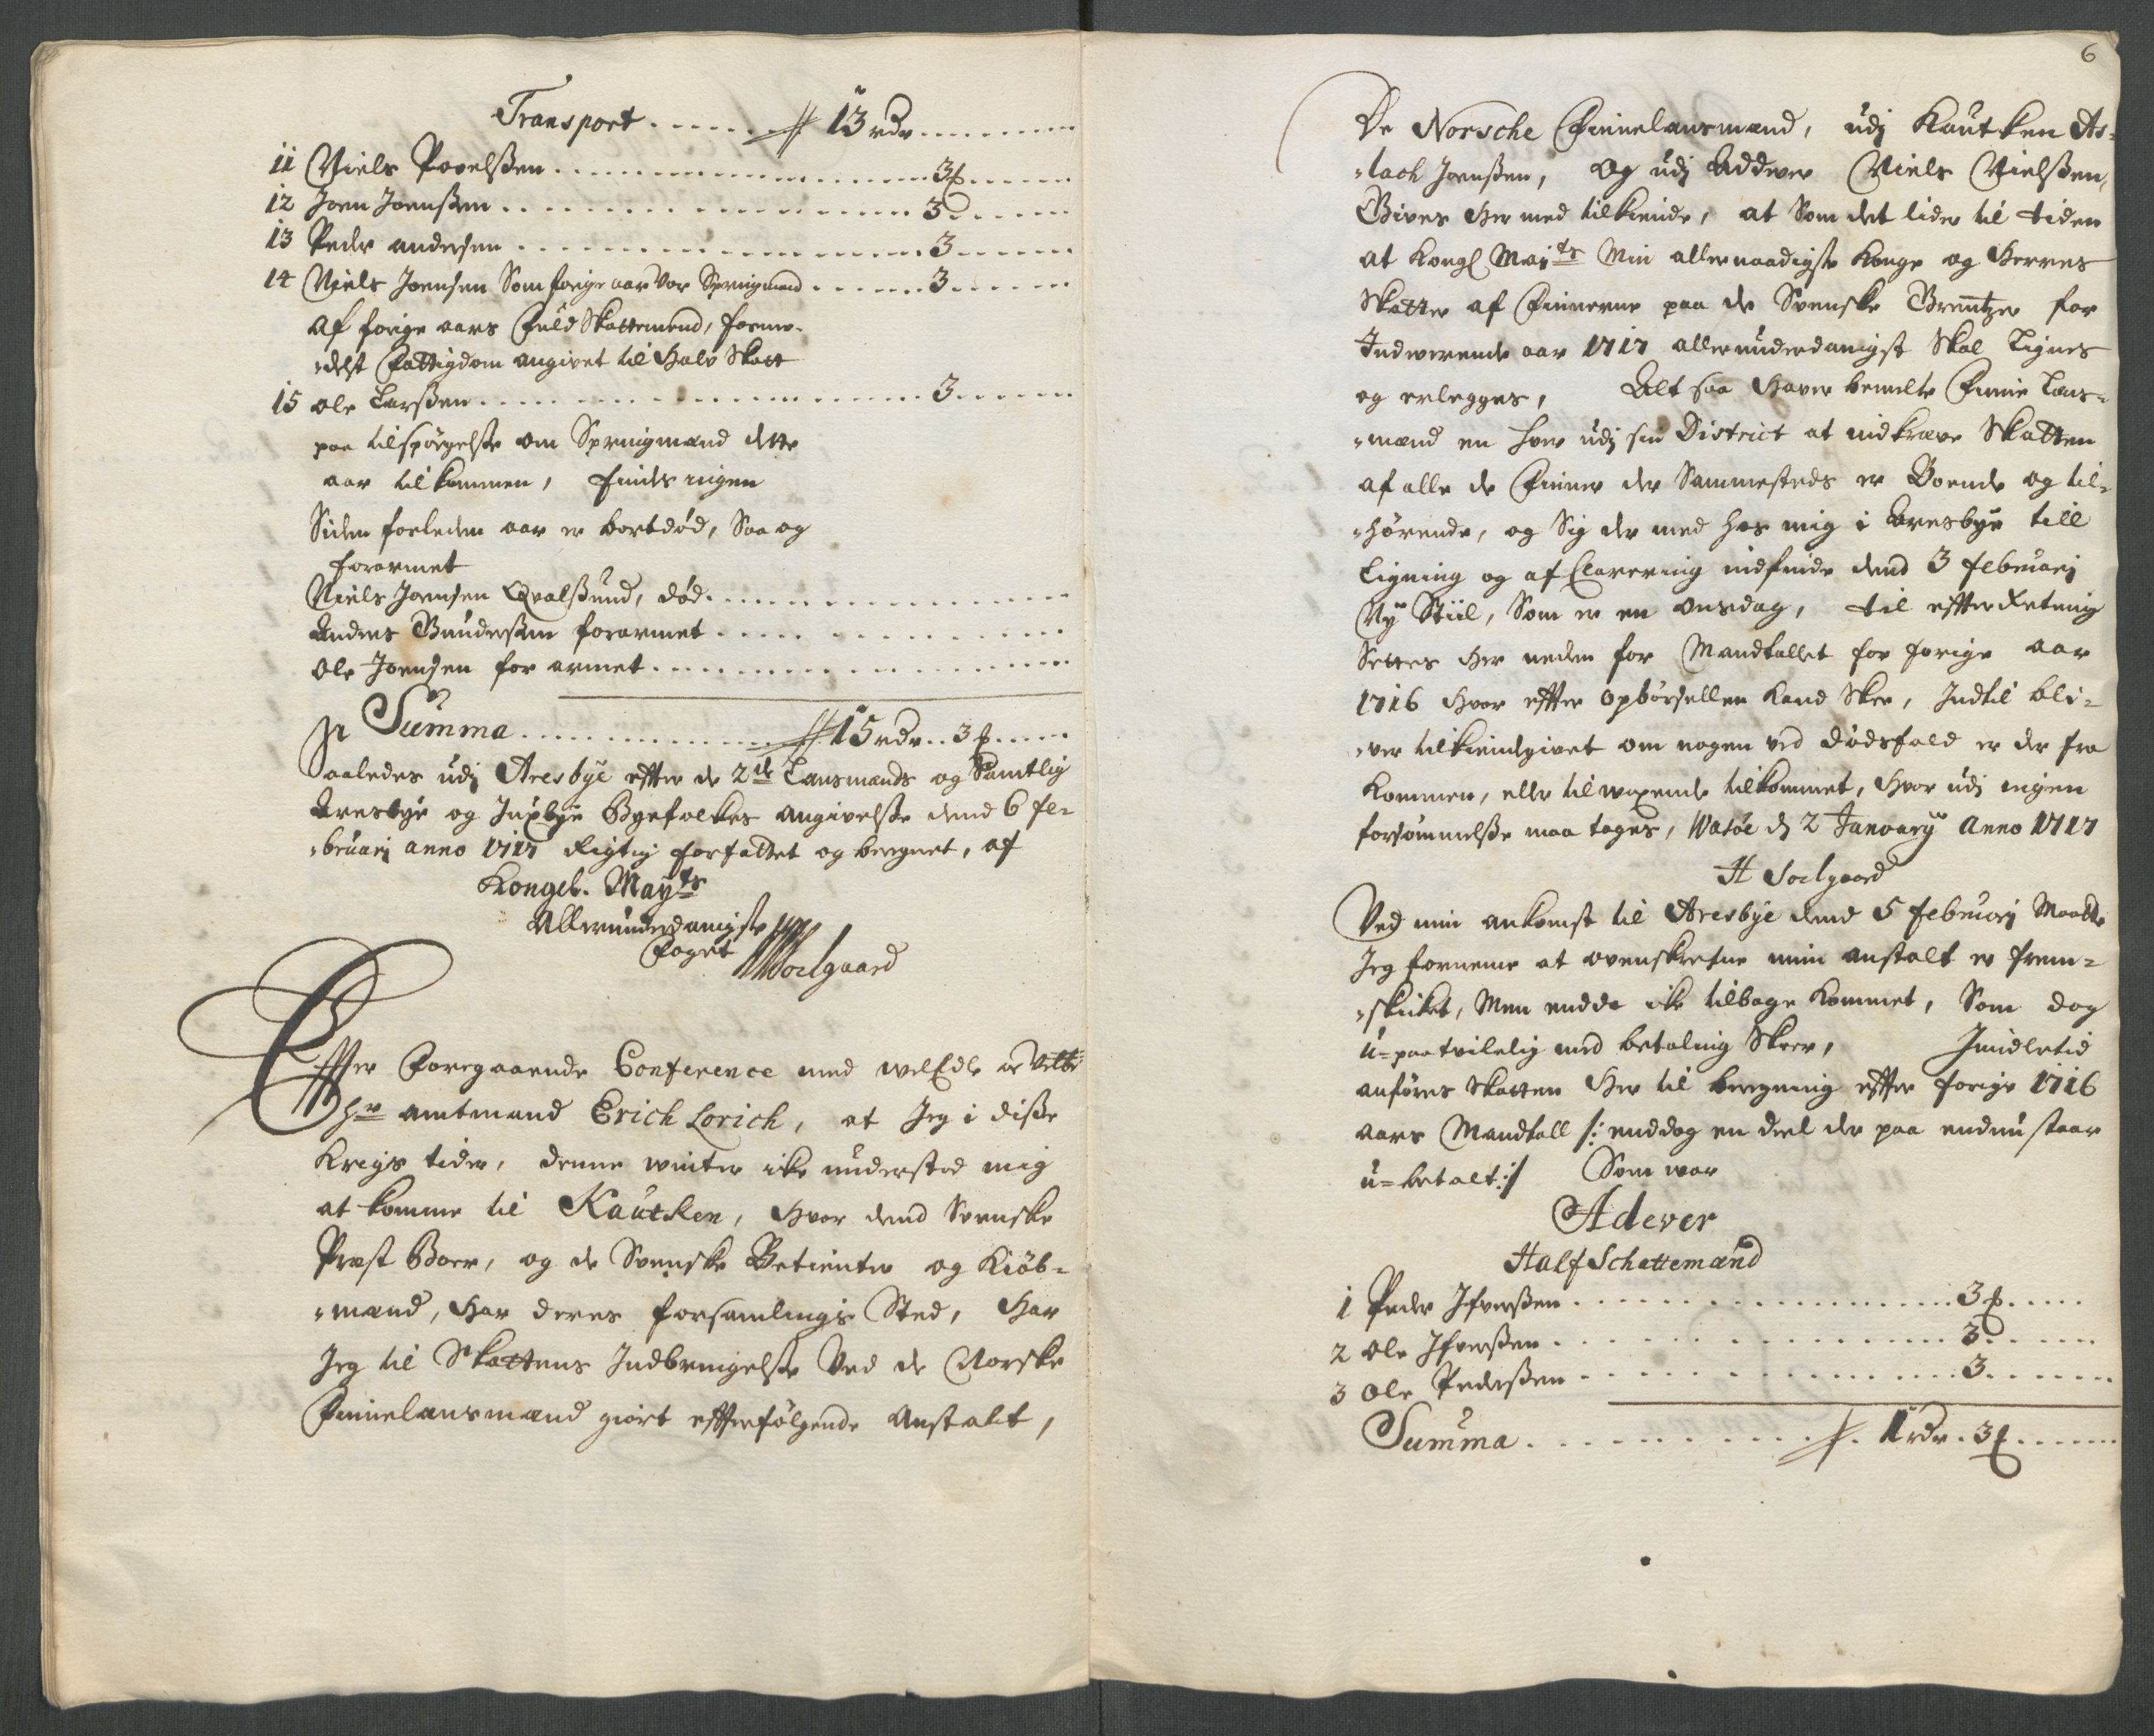 Transport . . . . . . # 13 rdr . . . . . . .
11 Niels Povelßen . . . . . . . . . . . . . . . 3 ß . . . . .
12 Joen Joenßen . . . . . . . . . . . . . . . 3 . . . . .
13 Peder andersen . . . . . . . . . . . . . . . 3 . . . . .
14 Niels Joensen Som forige aar Var Springmand . . . . . . 3 . . . . .
af forige aars Fuld Skattemend, forme-
delst Fattigdom angivet til Halv Skatt
15 ole Larßen . . . . . . . . . . . . . . . 3 . . . . .
paa tilspörgelße om Springmænd dette
aar til kommen, findes ingen
Siden forleden aar er bortdöd, Saa og
forarmet
Niels Joensen Qvalßund, död . . . . . . . . . .
Anders Gundersen forarmet . . . . . . . . . .
Ole Joensen for armet . . . . . . . . . .
Summa . . . . . . . . . . # 15 rdr . . 3 ß . . . .
Saaledes udj Aresbÿe effter de 2de Lansmænds og Samtlig
Aresbye og Juxbye Byefolkes angivelße dend 6 fe-
bruarj anno 1717 Rigtig forfattet og beregnet, af
Kongel. Mayts
Allerunderdanigste
Foget Soelgaard
Effter Foregaaende Conference med welEdle oc Velbr
Hr amtmand Erich Lorich, at Jeg i diße
Kregs tider, denne winter icke understod mig
at komme til Kautken, Hvor dend Svenske
Præst Boer, og de Svenske Betiente og Kiöb-
mænd, Har deres forsamlings Sted, Har
Jeg til Skattens Indbringelße Ved de Norske
Finnelansmænd giort effterfölgende Anstalt,
6
De Norsche Finnelansmænd, udj Kautken As-
lach Joenßen, Og udj Addever Niels Nielßen,
Gives Her med tilkiende, at Som det lider til tiden
at Kongl Mayts Min allernaadigste Konge og Herres
Skatter af Finnerne paa de Svenske Grentzer for
Indwerende aar 1717 allerunderdanigst Skal Lignes
og erlegges, Alt saa Haver bemelte Finne Lans-
mænd en hver udj sin District at indkræve Skatten
af alle de Finner der Sammesteds er Boende og til-
hörende, og Sig der med hos mig i Aresbye till
Ligning og af Clarering indfinde dend 3 februarj
Nÿ Stiil, Som er en Onsdag, til effterRetning
Settes Her neden for Mandtallet for forige aar
1716 Hvor effter Opbörsellen Kand Skee, Indtil bli-
ver tilkiendgivet om nogen ved Dödsfald er der fra
Kommen, eller tilwoxende tilkommet, Hvor udj ingen
forsömmelße maa tages, Wasöe dj 2 Januarÿ Anno 1717
H Soelgaard
Ved min ankomst til Aresbÿe dend 5 februarj Maatte
Jeg forneme at ovenskrefne min anstalt er frem-
skicket, Men endda icke tilbage Kommet, Som dog
u-paatvilelig med betaling Skeer, Imidletid
anföres Skatten Her til beregning effter forige 1716
aars Mandtall /: enddog en deel der paa endnu staar
u-betalt :/ Som war
Adever
Half Schattemænd
1 Peder Ifverßen . . . . . . . . . . . . . . . 3 ß . . . .
2 Ole Ifverßen . . . . . . . . . . . . . . . 3 . . . . .
3 Ole Pederßen . . . . . . . . . . . . . . . 3 . . . . .
Summa . . . . . . . . . . # . 1 rdr . 3 ß . . . . .